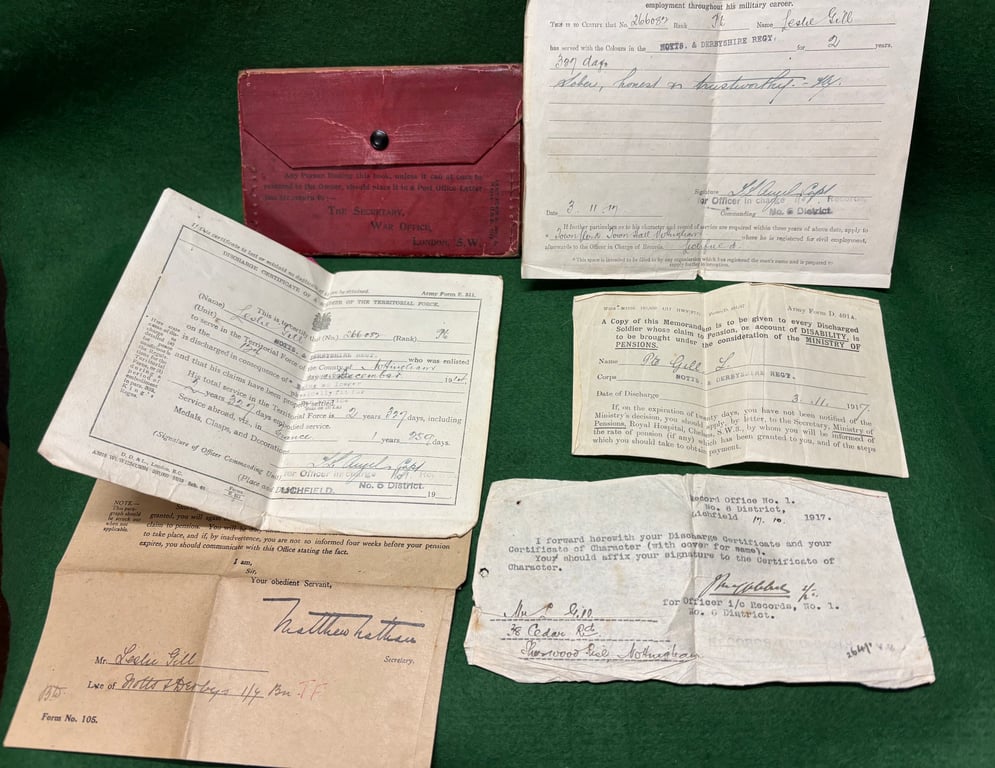 employment throughout his military career.
THIS IS TO CERTIFY that No. 266087 Rank Pte Name Leslie Gill
has served with the Colours in the NOTTS. & DERBYSHIRE REGT. for 2 years.
327 days
Sober, honest & trustworthy.
Signature Capt
for Officer in charge Records,
Commanding No. 6 District.
Date 3.11.17
If further particulars as to his character and record of service are required within three years of above date, apply to
Town Clerk Town Hall Nottingham where he is registered for civil employment,
afterwards to the Officer in Charge of Records. Lichfield.
* This space is intended to be filled in by any organisation which has registered the man's name and is prepared to
supply further information.
Any Person finding this book, unless it can at once be
returned to the Owner, should place it in a Post Office Letter
Box for return to:—
THE SECRETARY,
WAR OFFICE,
LONDON, S.W.
If this certificate is lost or mislaid no duplicate of it can be obtained.
Army Form E. 511.
DISCHARGE CERTIFICATE OF A SOLDIER OF THE TERRITORIAL FORCE.
This is to certify that
(Name) Leslie Gill (No.) 266087 (Rank) Pte
(Unit) NOTTS. & DERBYSHIRE REGT. who was enlisted
to serve in the Territorial Force of the County of Nottingham
on the day of December 191
is discharged in consequence of
and that his claims have been properly settled.
His total service in the Territorial Force is 2 years 327 days, including
2 years 327 days embodied service.
Service abroad, viz. in France 1 years 239 days.
Medals, Clasps, and Decorations
Capt
for Officer in charge
(Signature of Officer Commanding Unit)
No. 6 District.
(Place and Date) LICHFIELD. 19
D. D. & L., London, E.C.
Forms
E. 511
Army Form D. 401A.
A Copy of this Memorandum is to be given to every Discharged
Soldier whose claim to Pension, on account of DISABILITY, is
to be brought under the consideration of the MINISTRY OF
PENSIONS.
Name Pte Gill L.
Corps NOTTS. & DERBYSHIRE REGT.
Date of Discharge 3.11.1917.
If, on the expiration of twenty days, you have not been notified of the
Ministry's decision, you should apply, by letter, to the Secretary, Ministry of
Pensions, Royal Hospital, Chelsea, S.W.3., by whom you will be informed of
the rate of pension (if any) which has been granted to you, and of the steps
which you should take to obtain payment.
Record Office No. 1.
No. 6 District,
Lichfield 17.10.1917.
I forward herewith your Discharge Certificate and your
Certificate of Character (with cover for same).
You should affix your signature to the Certificate of
Character.
for Officer i/c Records, No. 1.
No. 6 District.
Mr L Gill
38 Cedar Rd.
Sherwood Rise, Nottingham
NOTE.—
This para-
graph should
be struck out
when not
applicable.
granted, you will again
claim to pension. You will be
to take place, and if, by inadvertence, you are not so informed four weeks before your pension
expires, you should communicate with this Office stating the fact.
I am,
Sir,
Your obedient Servant,
Matthew Nathan
Secretary.
Mr. Leslie Gill
Late of Notts & Derbys 1/7 Bn TF
Form No. 105.